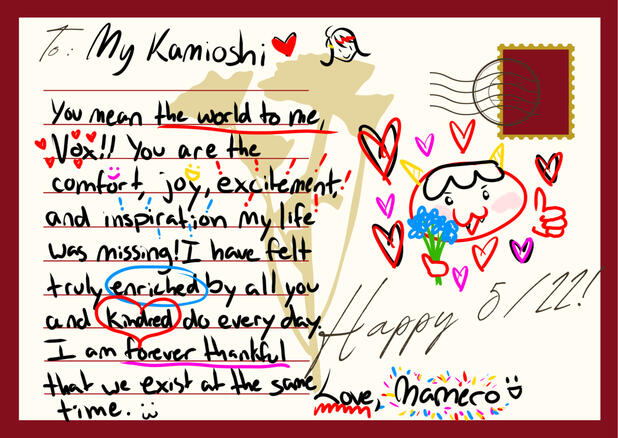 To: My Kamioshi
You mean the world to me,
Vox!! You are the
comfort, joy, excitement,
and inspiration my life
was missing! I have felt
truly enriched by all you
and Kindred do every day.
I am forever thankful
that we exist at the same
time. :)
Happy 5/22!
Love, Mamero :)